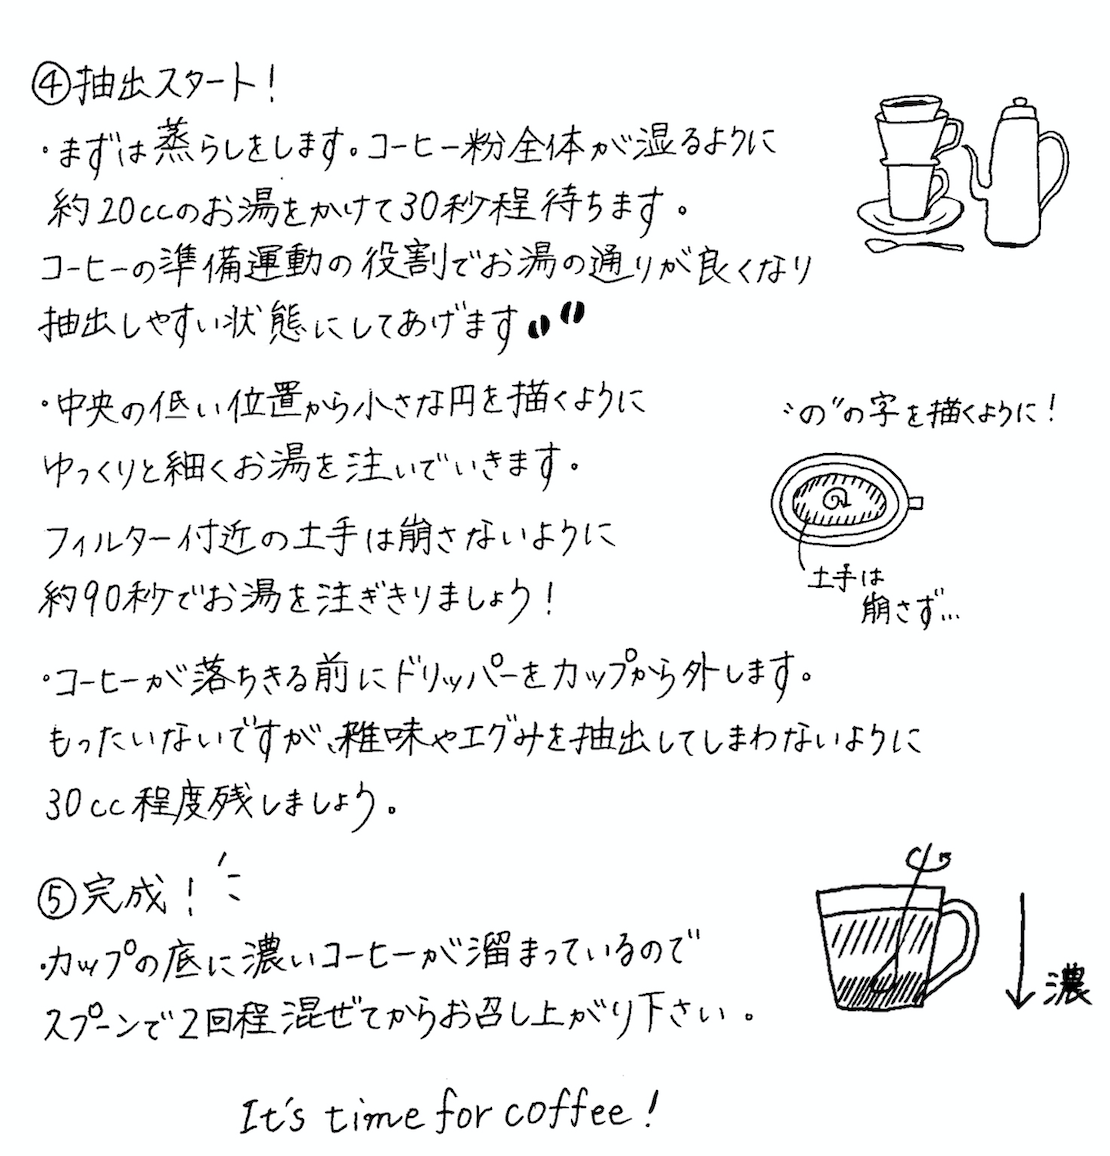 ④抽出スタート!
・まずは蒸らしをします。コーヒー粉全体が湿るように
約20ccのお湯をかけて30秒程待ちます。
コーヒーの準備運動の役割でお湯の通りが良くなり
抽出しやすい状態にしてあげます
・中央の低い位置から小さな円を描くように
ゆっくりと細くお湯を注いでいきます。
フィルター付近の土手は崩さないように
約90秒でお湯を注ぎきりましょう!
〝の〞の字を描くように!
土手は
崩さず…
・コーヒーが落ちきる前にドリッパーをカップから外します。
もったいないですが、雑味やエグみを抽出してしまわないように
30cc程度残しましょう。
⑤完成!
・カップの底に濃いコーヒーが溜まっているので
スプーンで2回程混ぜてからお召し上がり下さい。
濃
It's time for coffee!